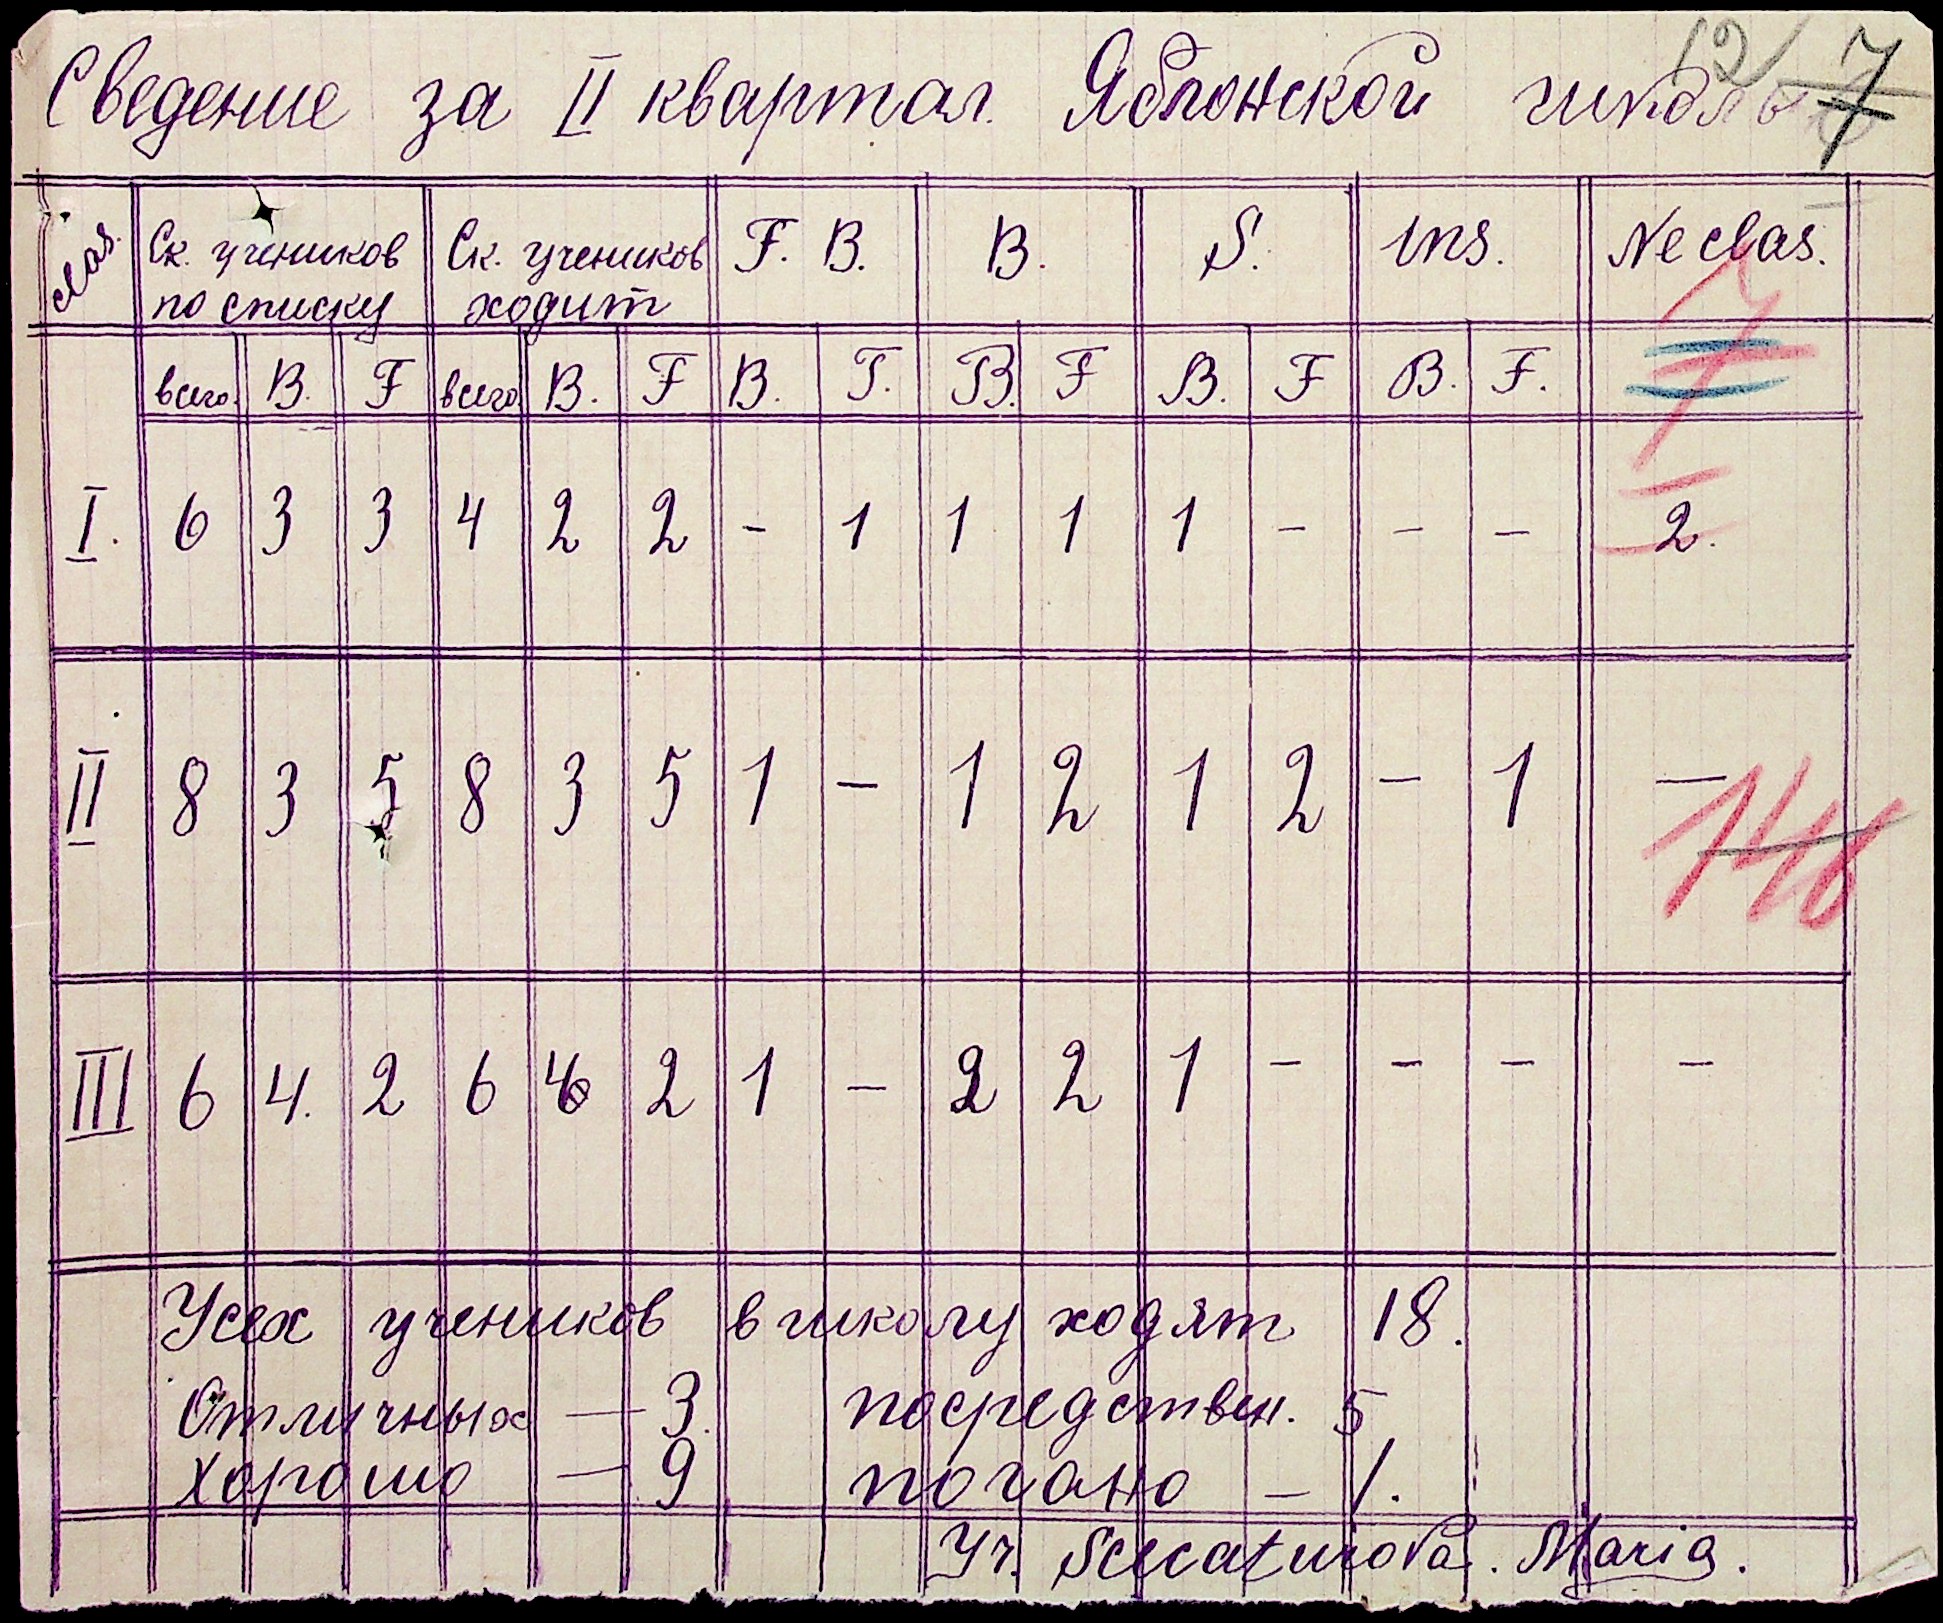 Сведение за II квартал Яблонской школы
12 7
7
clas. Ск. учеников по списку Ск. учеников ходит F. B. B. S. ins. Neclas.
всего. B. F всего B. F B. T. B. F B. F B. F.
7
I. 6 3 3 4 2 2 - 1 1 1 1 - - - 2.
II 8 3 5 8 3 5 1 - 1 2 1 2 - 1 -
III 6 4. 2 6 4 2 1 - 2 2 1 - - - -
Усех учеников в школу ходят 18.
Отличных — 3. посредствен. 5
Хорошо — 9 погано – 1.
Уч. Maria.